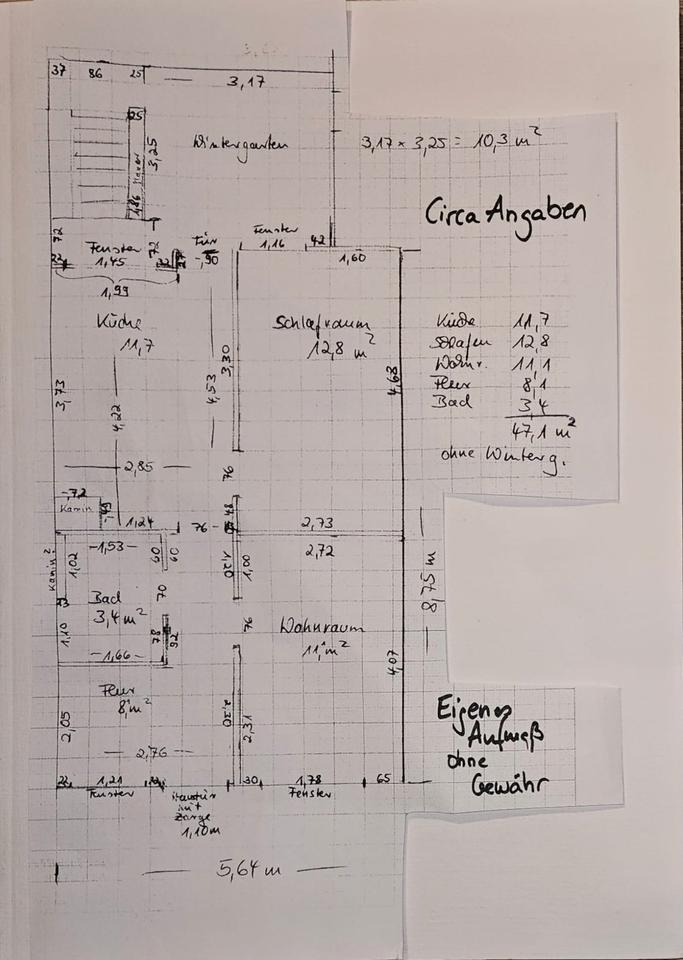 37 86 25
3,17
25
Wintergarten
3,25
Mauer
1,86
3,17 x 3,25 = 10,3 m²
Circa Angaben
72
Fenster
1,45
72
Tür
-,90
Fenster
1,16
42
1,60
22
22
27
1,99
Küche
11,7
Schlafraum
12,8 m²
3,30
4,53
3,73
4,22
4,68
Küche 11,7
Schlafen 12,8
Wohnr. 11,1
Flur 8,1
Bad 3,4
47,1 m²
ohne Winterg.
2,85
76
-,72
Kamin
-,49
48
1,24
76
2,73
1,53
2,72
Kamin?
1,02
60
60
1,00
8,75 m
Bad
3,4 m²
70
76
1,10
78
92
Wohnraum
11,1 m²
1,66
4,07
Flur
8,1 m²
2,05
2,31
2,76
Eigenes
Aufmaß
ohne
Gewähr
22
1,21
30
1,78
65
Fenster
Fenster
Haustür
mit
Zarge
1,10 m
5,64 m